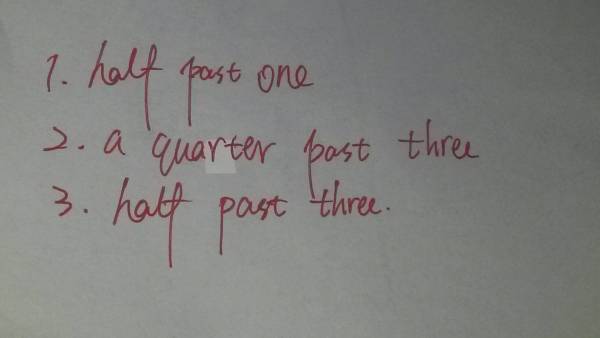 1. half past one
2. a quarter past three
3. half past three.